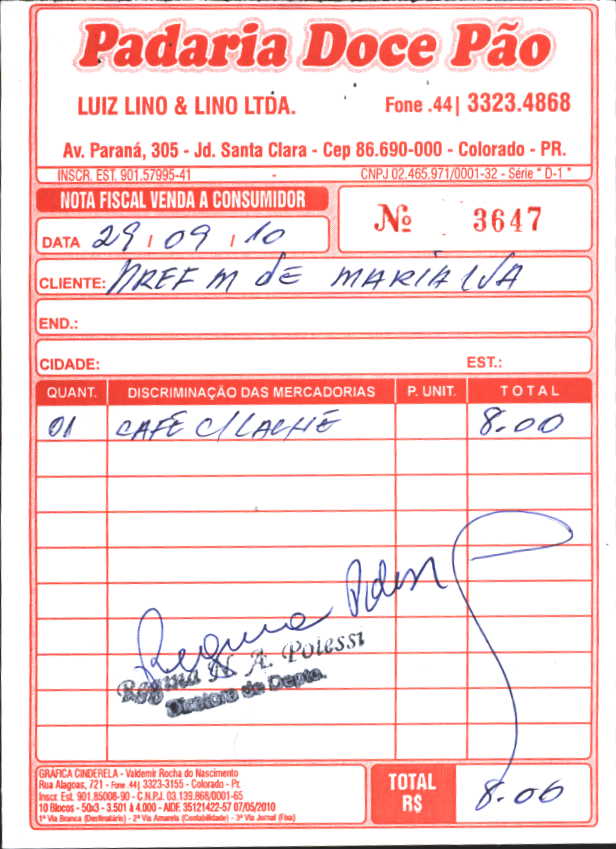 Padaria Doce Pão
LUIZ LINO & LINO LTDA. Fone .44| 3323.4868
Av. Paraná, 305 - Jd. Santa Clara - Cep 86.690-000 - Colorado - PR.
INSCR. EST. 901.57995-41 - CNPJ 02.465.971/0001-32 - Série " D-1 "
NOTA FISCAL VENDA A CONSUMIDOR
Nº 3647
DATA 29 / 09 / 10
CLIENTE: PREF M de MARIALVA
END.:
CIDADE: EST.:
QUANT. DISCRIMINAÇÃO DAS MERCADORIAS P. UNIT. TOTAL
01 CAFÉ C/LACHE 8.00
Regina
Regina N. A. Polessi
Diretora de Depto.
GRÁFICA CINDERELA - Valdemir Rocha do Nascimento
Rua Alagoas, 721 - Fone .44| 3323-3155 - Colorado - Pr.
Inscr. Est. 901.85008-90 - C.N.P.J. 03.139.868/0001-65
10 Blocos - 50x3 - 3.501 à 4.000 - AIDF. 35121422-57 07/05/2010
1ª Via Branca (Destinatário) - 2ª Via Amarela (Contabilidade) - 3ª Via Jornal (Fixa)
TOTAL R$ 8.00